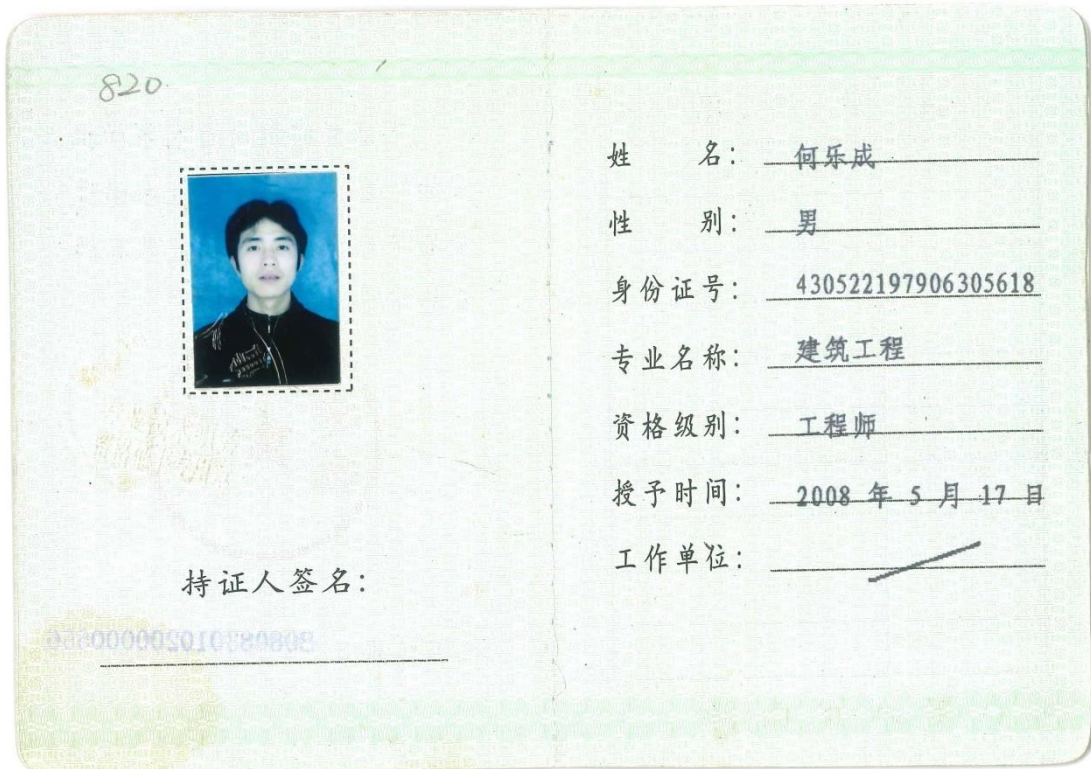 820
持证人签名:
姓 名: 何乐成
性 别: 男
身份证号: 430522197906305618
专业名称: 建筑工程
资格级别: 工程师
授予时间: 2008 年 5 月 17 日
工作单位: